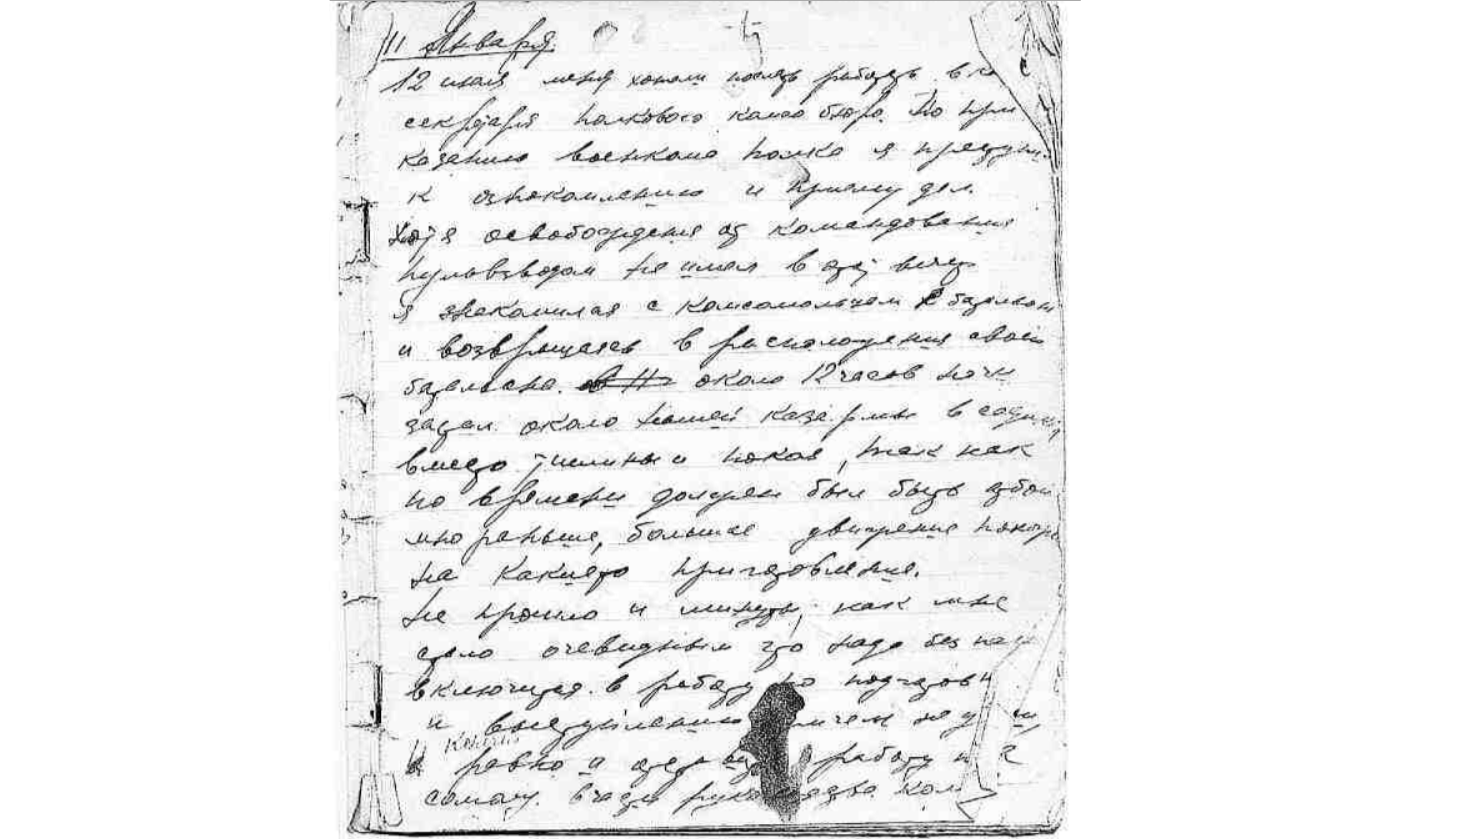 11 Января.
12 июля меня хотели послать работать в ка
секретаря полкового комсо бюро. По при
казанию военкома полка я преступил
к ознакомлению и приему дел.
Хотя освобождения от командования
пульвзводом не имел в этот вечер
я знакомился с комсомольцем 2 батальон
и возвращаясь в расположения своего
батальона. около 12 часов ночи
застал около нашей казармы в садик
вместо тишины и покоя, так как
по времени должен был быть отбой
мно раньше, большое движение
на какието приготовления.
Не прошло и минуты, как мне
стало очевидным что надо без
включится в работу по подготовк
и выступлению ничем не
равно и работу
самому. в части руководства ком